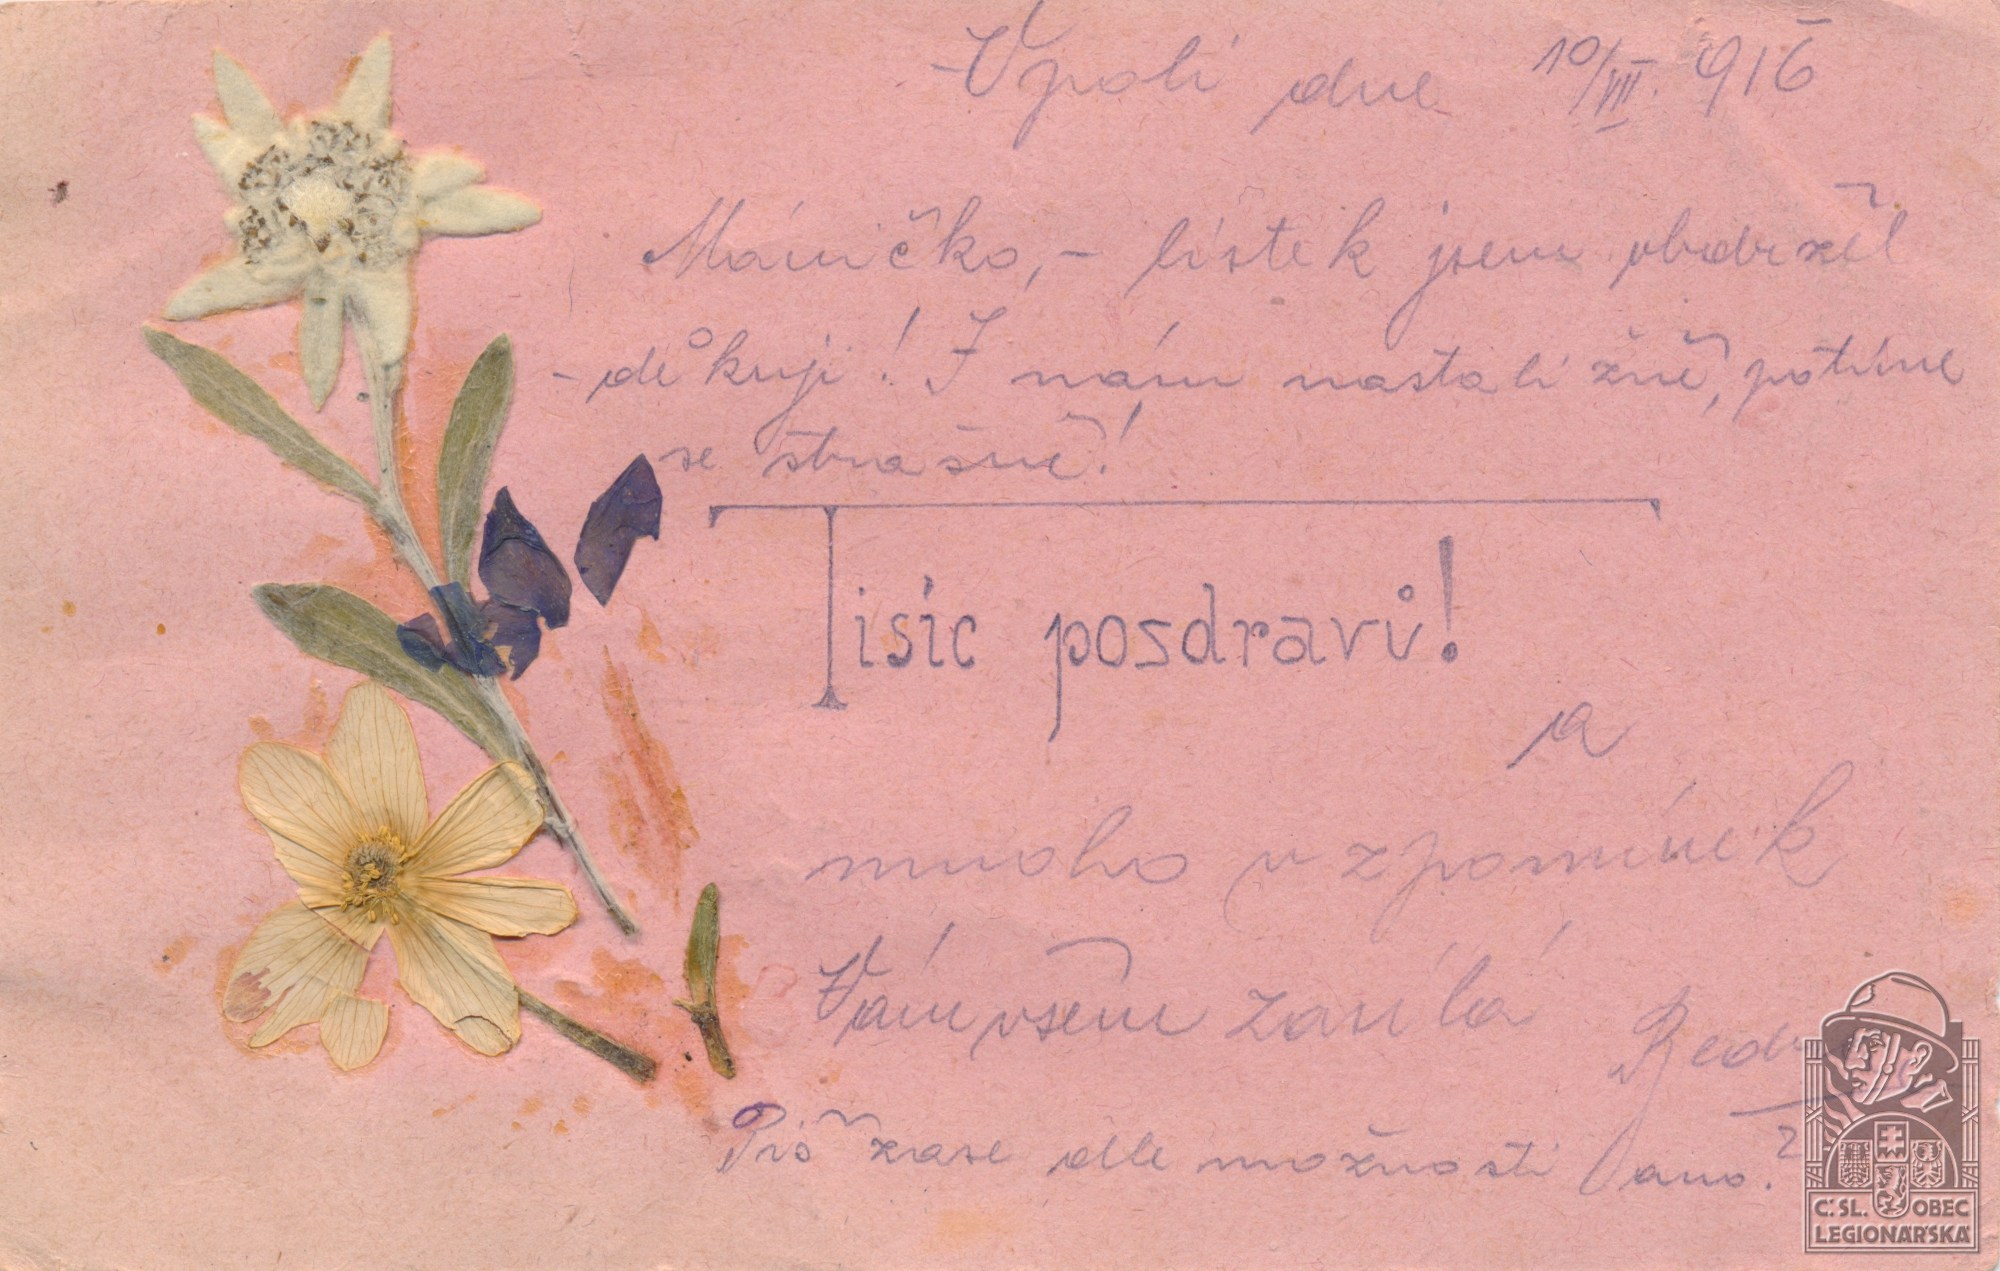 V poli dne 10/VII. 916
Máničko, - lístek jsem obdržel
- děkuji! I nám nastali žně, potíme
se strašně!
Tisíc pozdravů!
a
mnoho vzpomínek
Vám všem zasílá
Piš zase dle možnosti
Č. SL. OBEC
LEGIONÁŘSKÁ